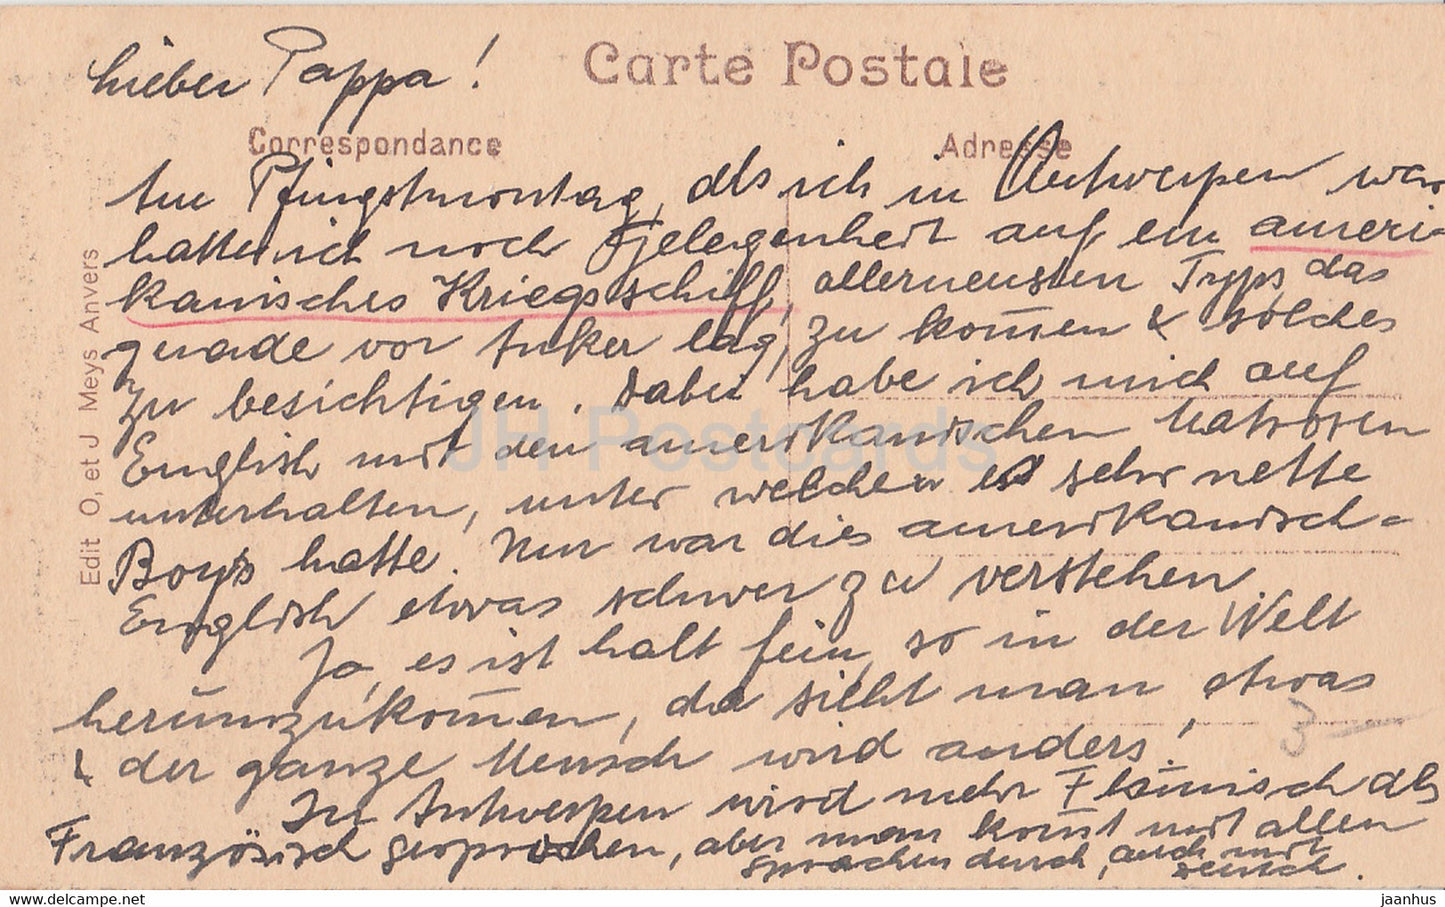 Lieber Pappa!
Carte Postale
Correspondance
Adresse
Am Pfingstmontag, als ich in Antwerpen war
hatte ich noch Gelegenheit auf ein ameri-
kanisches Kriegsschiff, allerneusten Typs, das
gerade vor Anker lag, zu kom̄en & solches
zu besichtigen. Dabei habe ich mich auf
English mit den amerikanischen Matrosen
unterhalten, unter welchen es sehr nette
Boys hatte. Nur war dies amerikanisch-
English etwas schwer zu verstehen
Ja, es ist halt fein, so in der Welt
herumzukom̄en, da sieht man etwas
& der ganze Mensch wird anders!
In Antwerpen wird mehr Flämisch als
Französisch gesprochen, aber man kom̄t mit allen
Sprachen durch, auch mit
Deutsch.
3
Edit O, et J Meys Anvers
JH Postcards
hippostcard.com
jaanhus